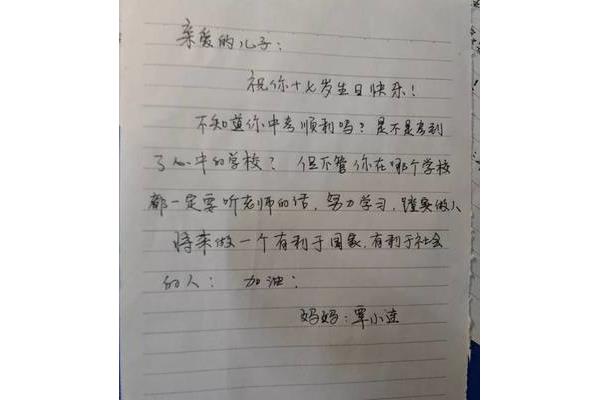 亲爱的儿子:
祝你十七岁生日快乐!
不知道你中考顺利吗?是不是考到
了心中的学校?但不管你在哪个学校
都一定要听老师的话,努力学习,踏实做人
将来做一个有利于国家,有利于社会
的人;加油;
妈妈:覃小